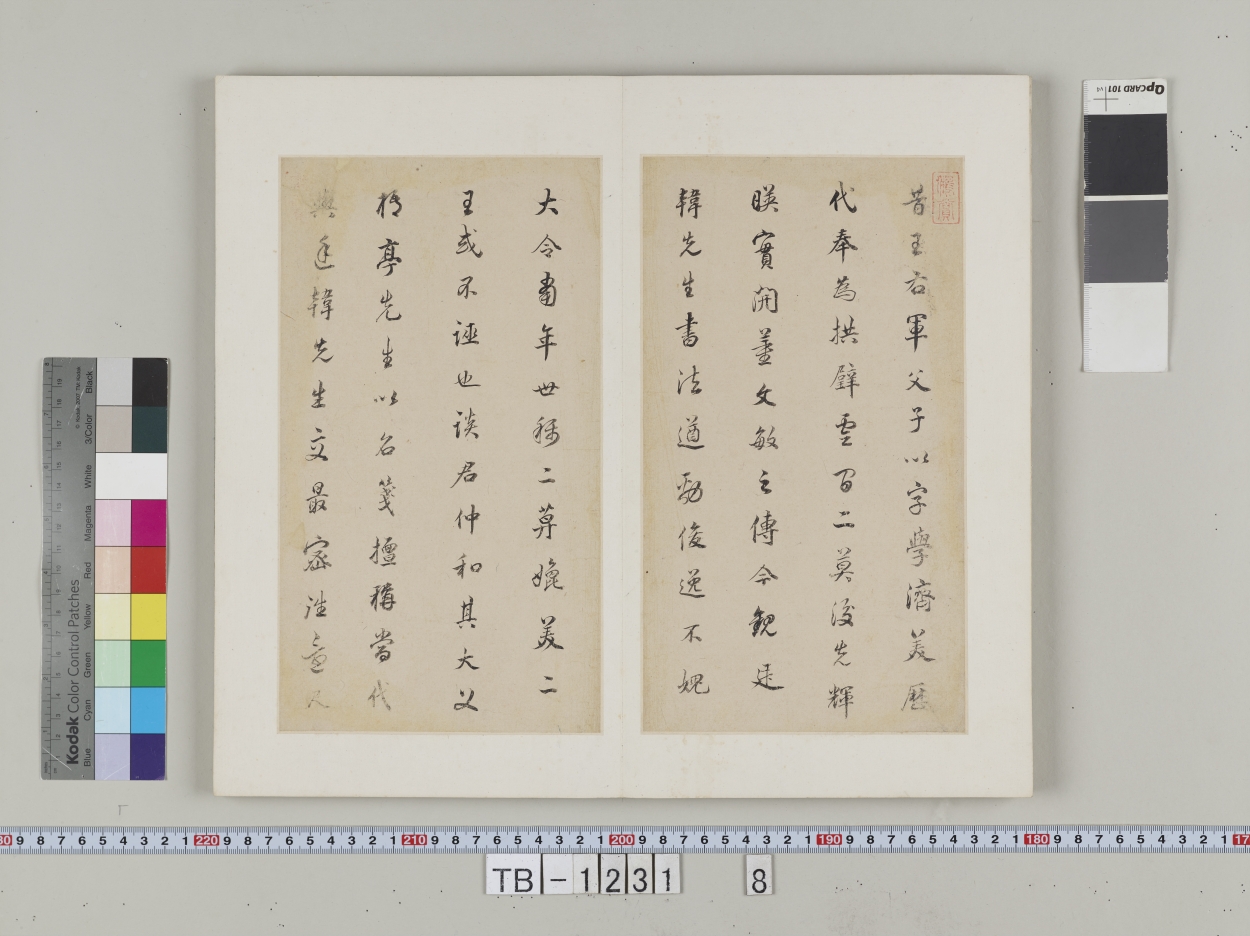 昔王右軍父子以字學濟美歷
代奉為拱璧雲間二莫後先輝
暎實開董文敏之傳今觀是
韓先生書法遒勁俊逸不媿
大令當年世稱二莫媲美二
王或不誣也談君仲和其大父
梅亭先生以名箋擅稱當代
與逢韓先生交最密許意又
QpCARD 101
Kodak Color Control Patches
Blue Cyan Green Yellow Red Magenta White 3/Color Black
220 210 200 190 180
TB-1231 8